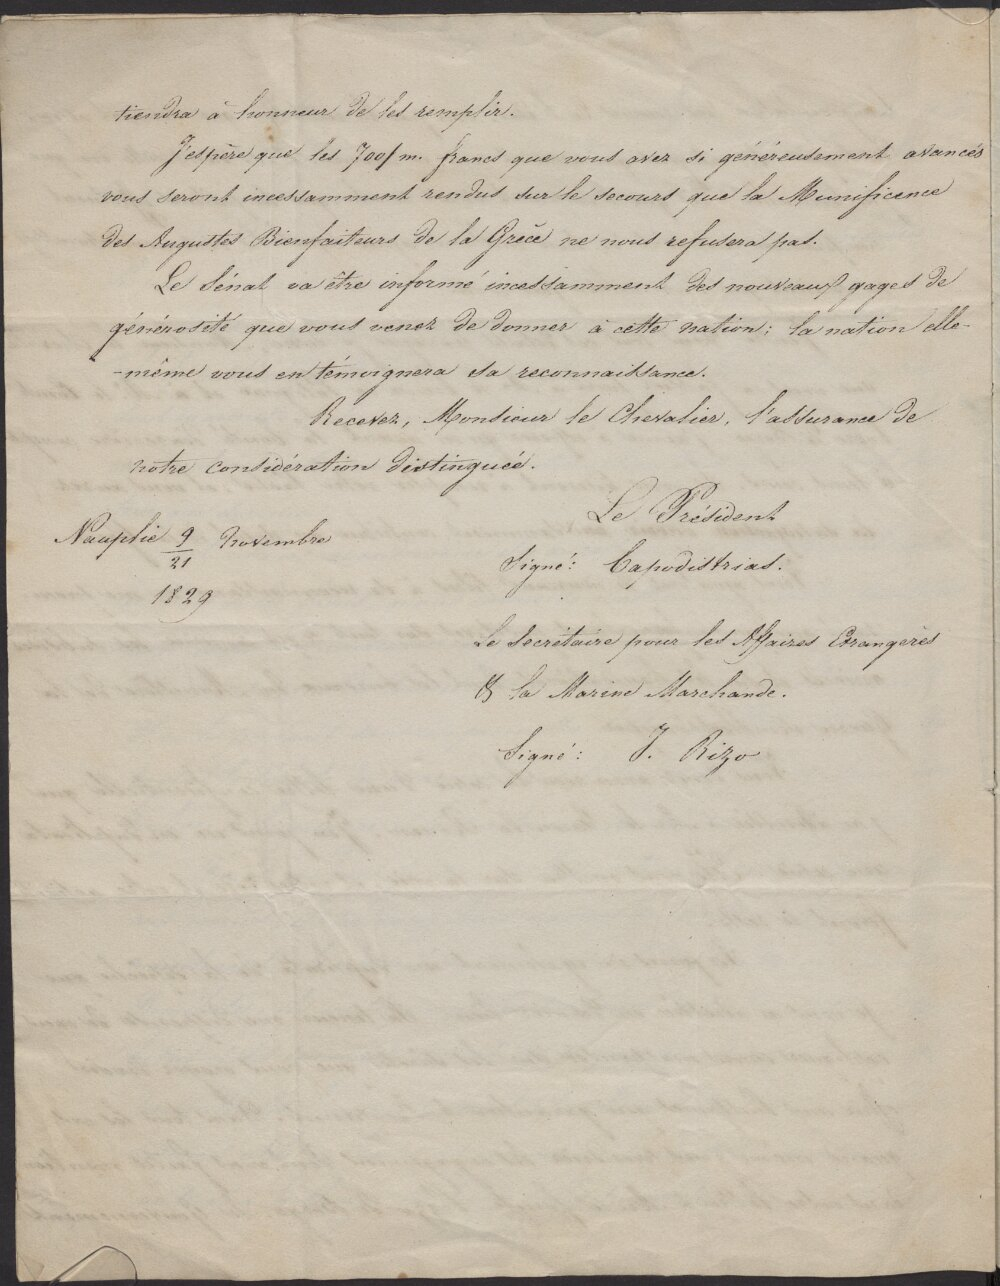 tiendra à honneur de les remplir.
J'espère que les 700/m. francs que vous avez si généreusement avancés
vous seront incessamment rendus sur le secours que la Munificence
des Augustes Bienfaiteurs de la Grèce ne nous refusera pas.
Le Sénat va être informé incessamment des nouveaux gages de
générosité que vous venez de donner à cette nation; la nation elle-
-même vous en témoignera sa reconnaissance.
Recevez, Monsieur le Chevalier, l'assurance de
notre considération distinguée.
Le Président
Nauplie 9/21 novembre
1829
Signé: Capodistrias.
Le Secrétaire pour les Affaires Etrangères
& la Marine Marchande.
Signé: J. Rizo